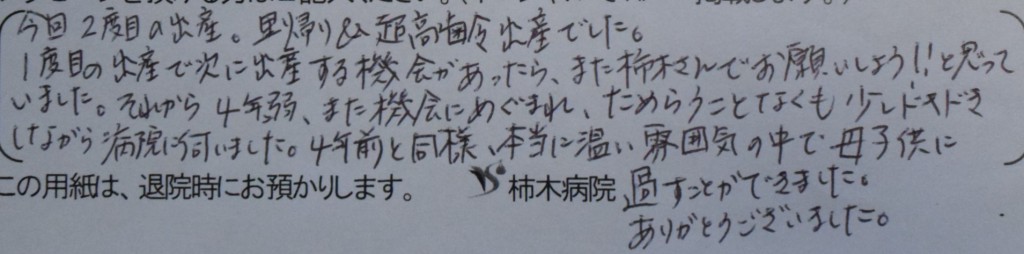 今回2度目の出産。里帰り&超高齢出産でした。
1度目の出産で次に出産する機会があったら、また柿木さんでお願いしよう!!と思って
いました。それから4年弱、また機会にめぐまれ、ためらうことなくも少しドキドキ
しながら病院に伺いました。4年前と同様、本当に温い雰囲気の中で母子供に
この用紙は、退院時にお預かりします。
柿木病院
過すことができました。
ありがとうございました。